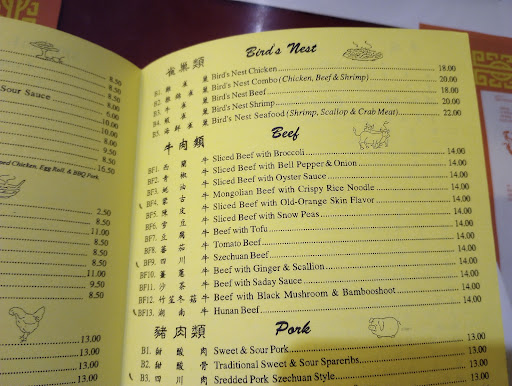 8.50
8.50
Sour Sauce
8.50
8.00
6.00
10.00
10.00
8.00
9.50
8.50
Chicken, Egg Roll, & BBQ Pork
16.50
2.50
8.50
11.00
8.50
8.50
11.00
9.50
8.50
13.00
13.00
13.00
雀巢類 Bird's Nest
B1. 雞 雀 巢 Bird's Nest Chicken 18.00
Bird's Nest Combo (Chicken, Beef & Shrimp) 20.00
雀 巢 Bird's Nest Beef 18.00
雀 巢 Bird's Nest Shrimp 20.00
B5. 海鮮雀巢 Bird's Nest Seafood (Shrimp, Scallop & Crab Meat) 22.00
牛肉類 Beef
BF1. 西蘭牛 Sliced Beef with Broccoli 14.00
BF2. 青椒牛 Sliced Beef with Bell Pepper & Onion 14.00
BF3. 蠔油牛 Sliced Beef with Oyster Sauce 14.00
BF4. 蒙古牛 Mongolian Beef with Crispy Rice Noodle 14.00
BF5. 陳皮牛 Sliced Beef with Old-Orange Skin Flavor 14.00
BF6. 雪豆牛 Sliced Beef with Snow Peas 14.00
BF7. 豆腐牛 Beef with Tofu 14.00
BF8. 蕃茄牛 Tomato Beef 14.00
BF9. 四川牛 Szechuan Beef 14.00
BF10. 薑蔥牛 Beef with Ginger & Scallion 14.00
BF11. 沙茶牛 Beef with Saday Sauce 14.00
BF12. 竹笙冬菇牛 Beef with Black Mushroom & Bambooshoot 14.00
BF13. 湖南牛 Hunan Beef 14.00
豬肉類 Pork
B1. 甜酸肉 Sweet & Sour Pork 13.00
B2. 甜酸骨 Traditional Sweet & Sour Spareribs 13.00
B3. 四川肉 Sredded Pork Szechuan Style 13.00